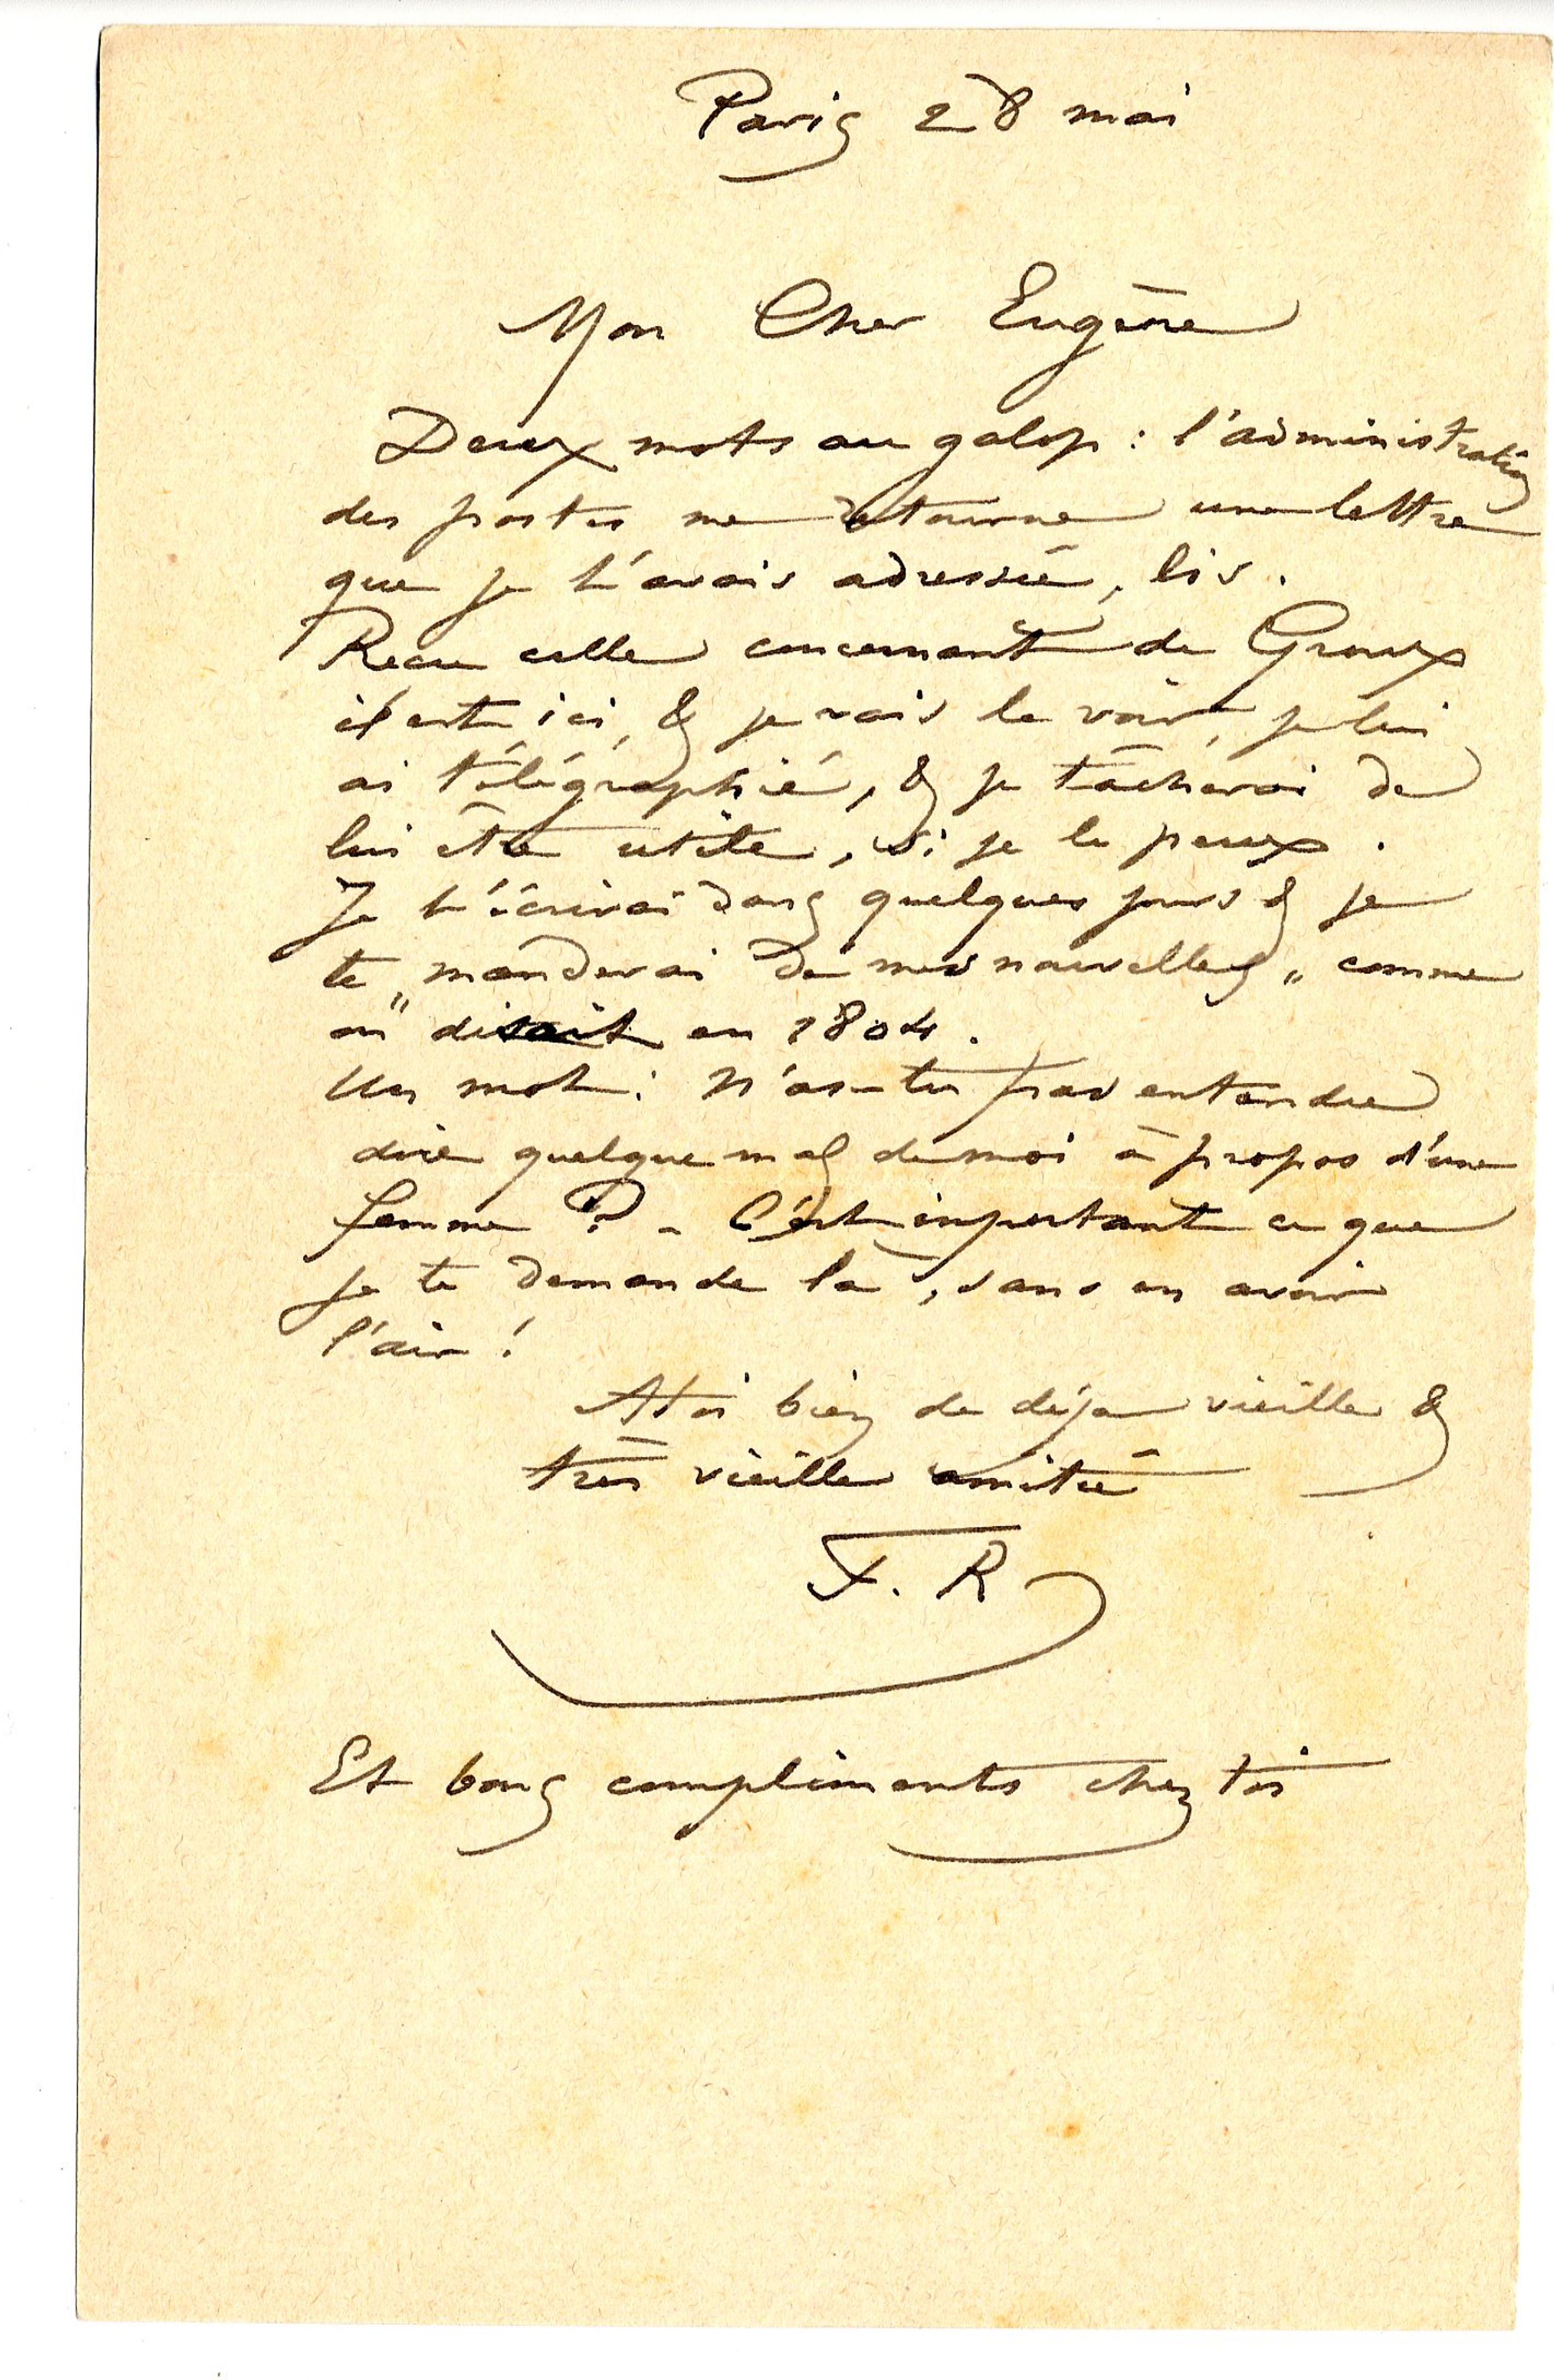 Paris 28 mai
Mon Cher Eugène
Deux mots au galop : l'administration
des postes me retourne une lettre
que je t'avais adressée, lis.
Reçu celle concernant de Groux
il est ici, & je vais le voir, je lui
ai télégraphié, & je tâcherai de
lui être utile, si je le peux.
Je t'écrirai dans quelques jours & je
te „manderai de mes nouvelles„ comme
on" disait en 1804.
Un mot : N'as-tu pas entendu
dire quelque mal de moi à propos d'une
femme ? – C'est important ce que
je te demande là, sans en avoir
l'air !
A toi bien de déjà vieille &
très vieille amitié
F. R
Et bons compliments chez toi